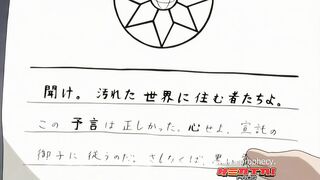 聞け。汚れた世界に住む者たちよ。
この予言は正しかった。心せよ、宣託の
御子に従うのだ。さしなくば、黒い
prophecy.